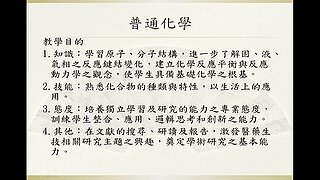 普通化學
教學目的
1. 知識：學習原子、分子結構，進一步了解固、液、
氣相之反應鍵結變化，建立化學反應平衡與反應
動力學之觀念，使學生具備基礎化學之根基。
2. 技能：熟悉化合物的種類與特性，以生活上的應
用。
3. 態度：培養獨立學習及研究的能力之專業態度，
訓練學生整合、應用、邏輯思考和創新之能力。
4. 其他：在文獻的搜尋、研讀及報告，激發醫藥生
技相關研究主題之興趣，奠定學術研究之基本能
力。